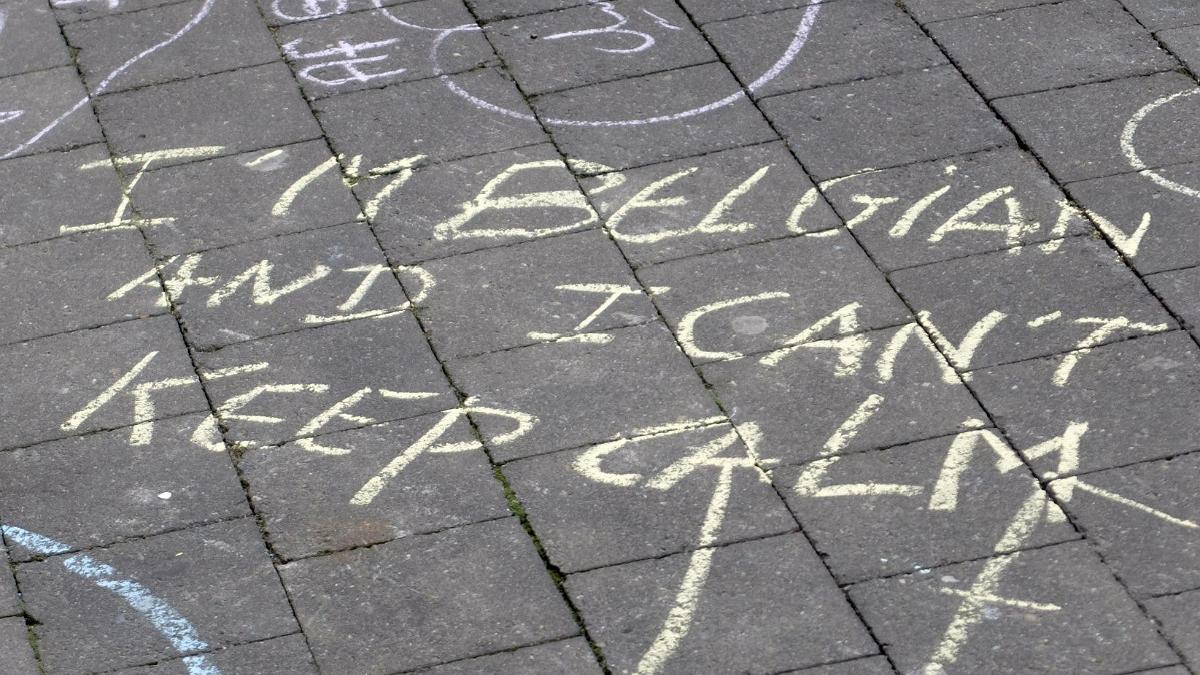 I'M BELGIAN
AND I CAN'T
KEEP CALM